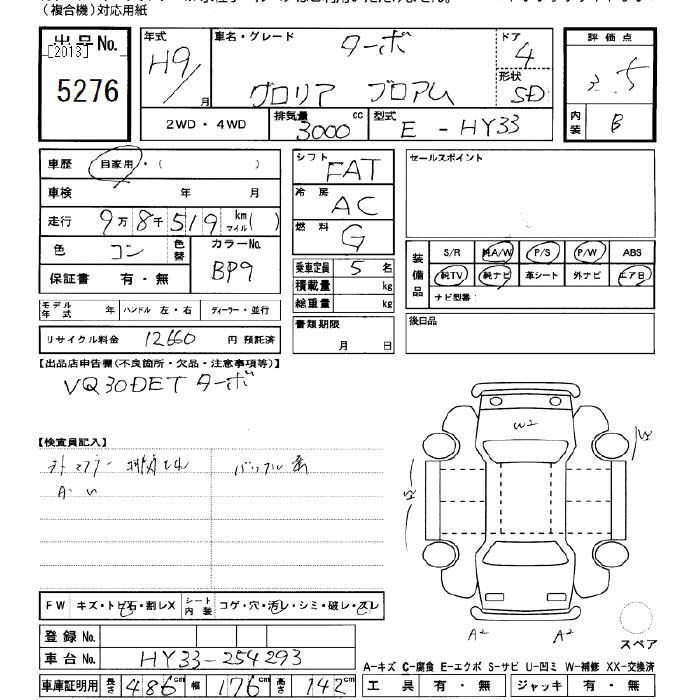 (複合機)対応用紙
出品No.
[2013]
5276
年式
H9/
月
車名・グレード
ターボ
グロリア ブロアム
ドア
4
形状
SD
2WD・4WD
排気量
3000
cc
型式
E-HY33
評価点
3.5
内装
B
車歴
自家用・( )
車検 年 月
走行
9万8千519
km
マイル( )
色
コン
色替
カラーNo.
BP9
保証書 有・無
モデル年式 年
ハンドル 左・右
ディーラー・並行
リサイクル料金 12660 円 預託済
シフト
FAT
冷房
AC
燃料
G
乗車定員 5 名
積載量 kg
総重量 kg
書類期限
月 日
セールスポイント
装備品
S/R
純A/W
P/S
P/W
ABS
純TV
純ナビ
革シート
外ナビ
エアB
ナビ型番:
後日品
【出品店申告欄(不良箇所・欠品・注意事項等)】
VQ30DET ターボ
【検査員記入】
W2
A2
A2
スペア
FW
キズ・トビ石・割レX
シート内装
コゲ・穴・汚レ・シミ・破レ・スレ
登録No.
車台No.
HY33-254293
車庫証明用
長さ
486
cm
幅
176
cm
高さ
142
cm
A-キズ C-腐食 E-エクボ S-サビ U-凹ミ W-補修 XX-交換済
工具 有・無
ジャッキ 有・無